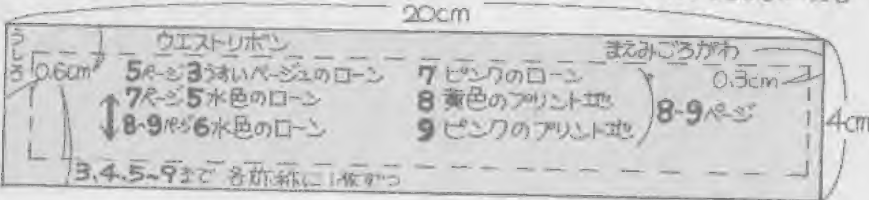 20cm
うしろ
ウエストリボン
まえみごろがわ
0.6cm
5ページ3うすいベージュのローン
7ページ5水色のローン
8-9ページ6水色のローン
7 ピンクのローン
8 黄色のプリント地
9 ピンクのプリント地
8-9ページ
0.3cm
4cm
3.4.5~9まで 各 に1枚ずつ